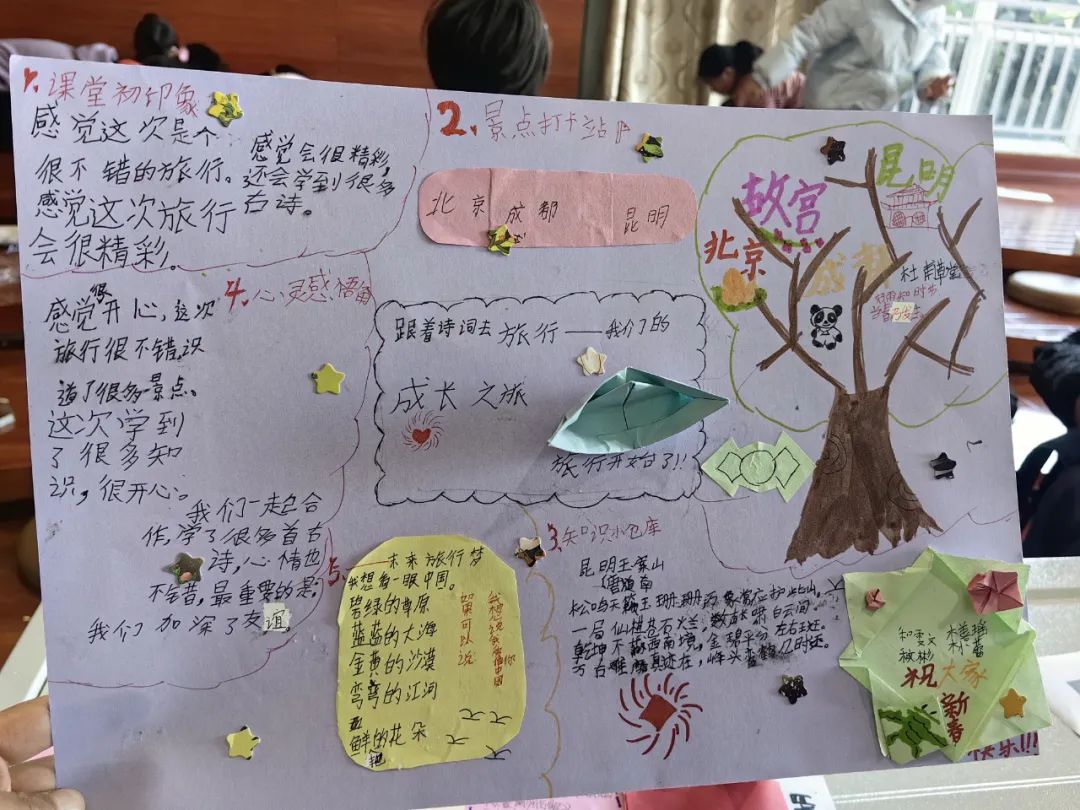 1.课堂初印象
感觉这次是个
很不错的旅行。
感觉这次旅行
会很精彩。
感觉会很精彩,
还会学到很多
古诗。
2、景点打卡站
北京 成都 昆明
故宫
北京
成都
昆明
杜甫草堂
好雨知时节
当春乃发生
跟着诗词去旅行——我们的
成长之旅
旅行开始了!!
4、心灵感悟角
感觉很开心,这次
旅行很不错,识
道了很多景点、
这次学到
了很多知
识,很开心。
我们一起合
作,学了很多首古
诗,心情也
不错,最重要的是:
我们加深了友谊。
5、未来旅行梦
我想看一眼中国。
碧绿的草原
蓝蓝的大海
金黄的沙漠
弯弯的江河
鲜艳的花朵
如果可以说
3、知识小仓库
昆明王案山
松鸣天籁玉珊珊
一局仙棋苍石烂
乾坤不
万古难
祝大家
新春
快乐!!!